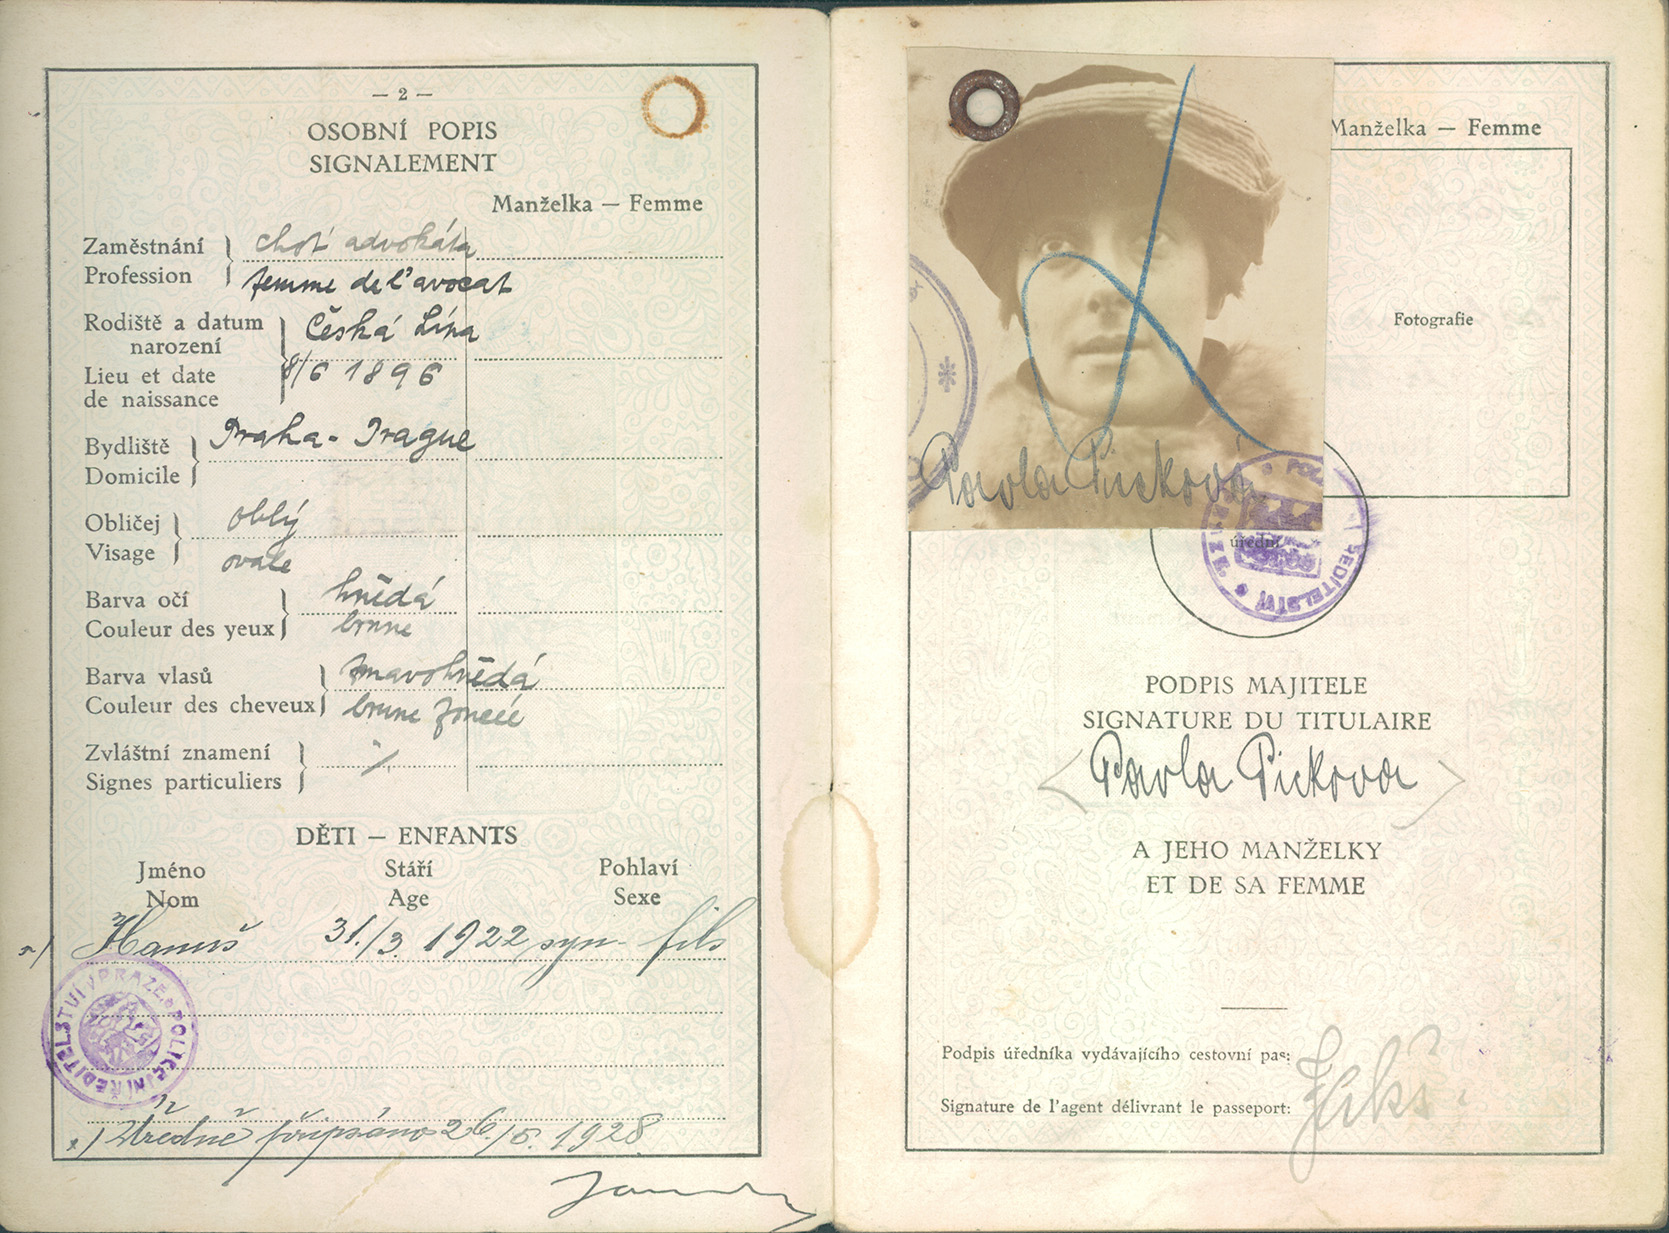 — 2 —
OSOBNÍ POPIS
SIGNALEMENT
Manželka — Femme
Zaměstnání choť advokáta
Profession femme de l'avocat
Rodiště a datum Česká Lípa
narození
Lieu et date 8/6 1896
de naissance
Bydliště Praha - Prague
Domicile
Obličej oblý
Visage ovale
Barva očí hnědá
Couleur des yeux brune
Barva vlasů tmavohnědá
Couleur des cheveux brune foncée
Zvláštní znamení ./.
Signes particuliers
DĚTI — ENFANTS
Jméno Stáří Pohlaví
Nom Age Sexe
x) Hanuš 31./3. 1922 syn - fils
POLICEJNÍ ŘEDITELSTVÍ V PRAZE
x) Úředně připsáno 26./5. 1928
Manželka — Femme
Fotografie
Pavla Picková
úřední
ŘEDITELSTVÍ
PODPIS MAJITELE
SIGNATURE DU TITULAIRE
Pavla Pickova
A JEHO MANŽELKY
ET DE SA FEMME
Podpis úředníka vydávajícího cestovní pas:
Signature de l'agent délivrant le passeport: